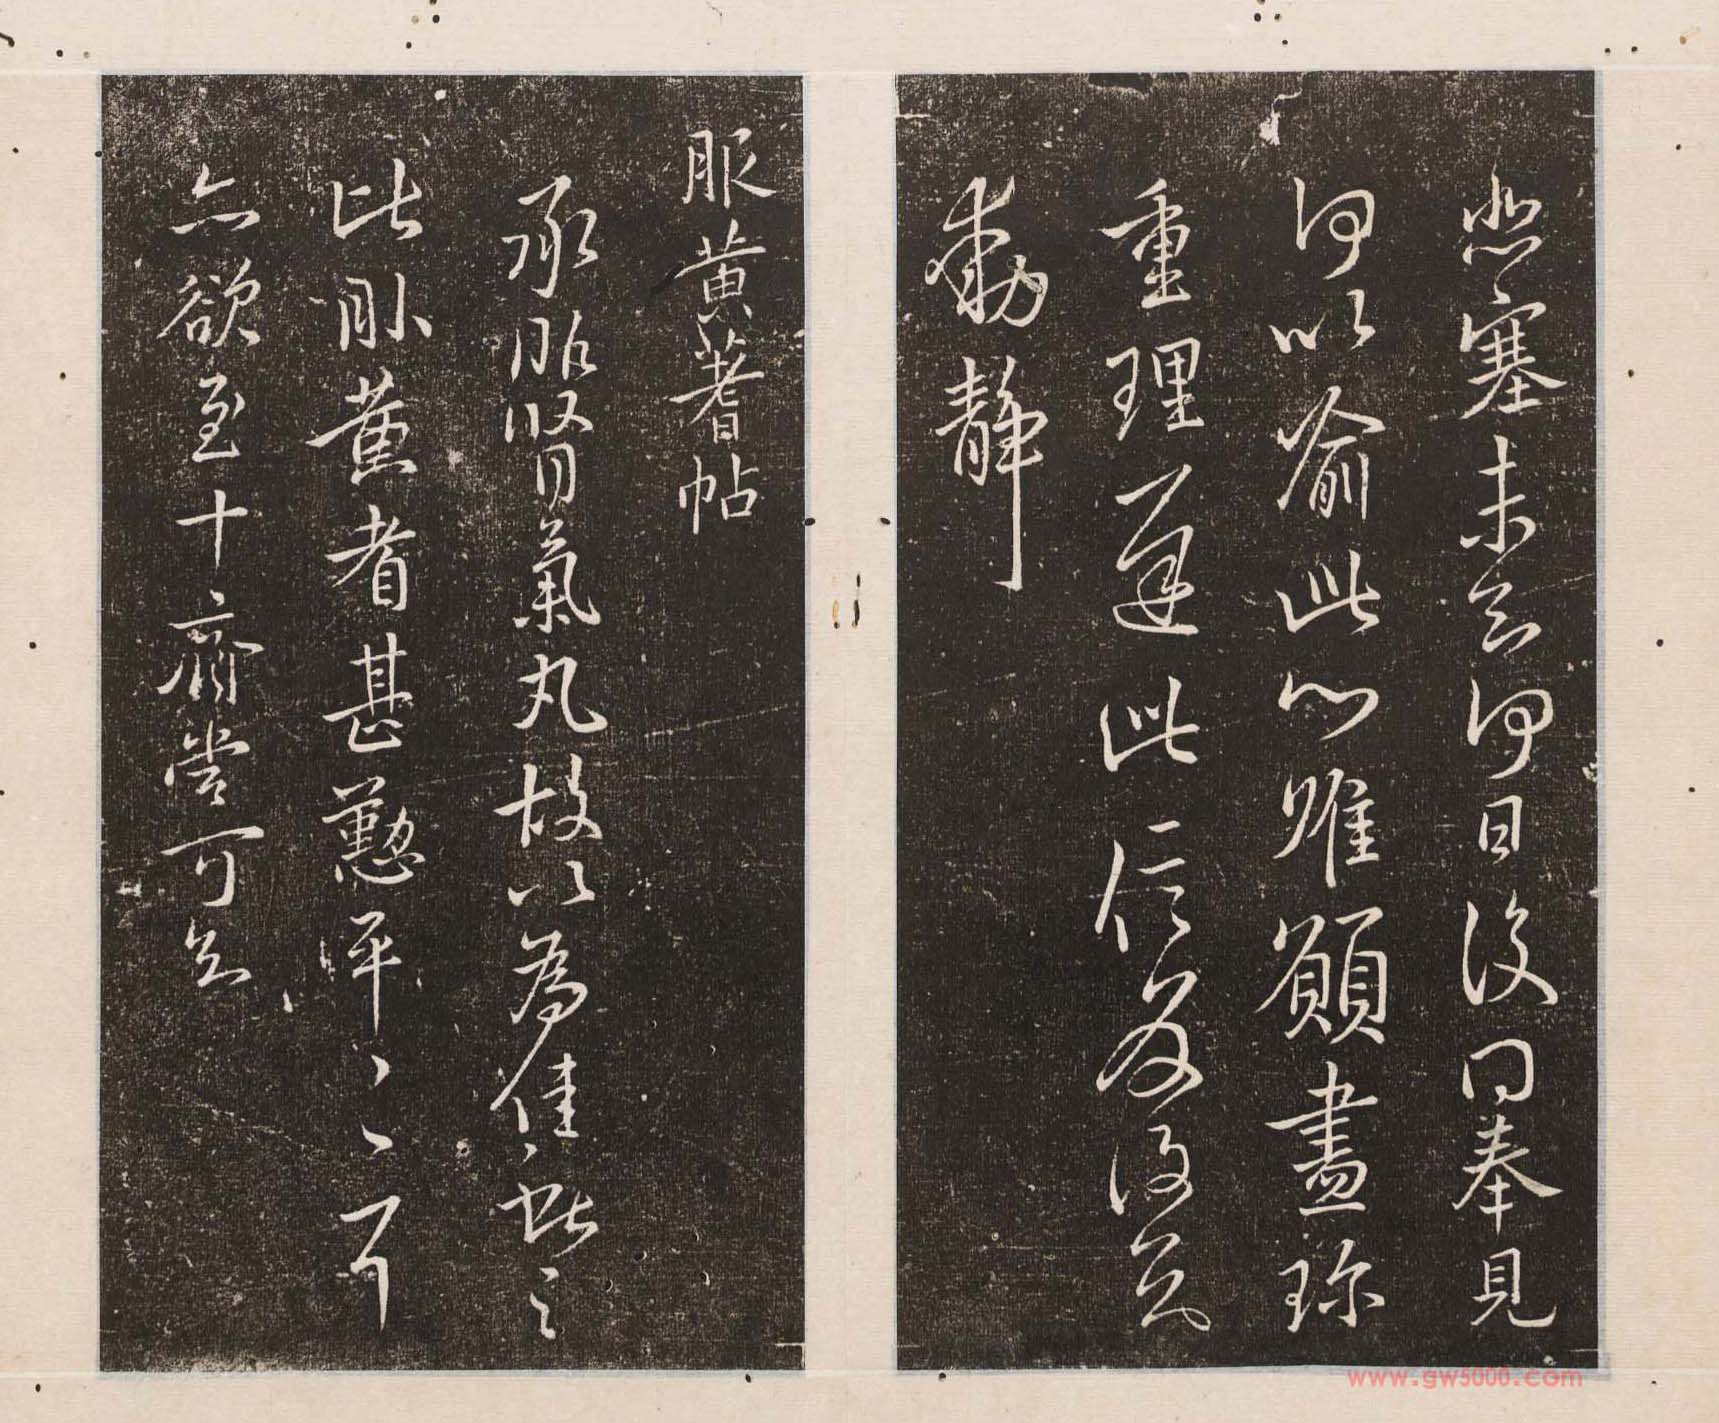 悲塞未知何日復奉見
何以喻此心唯願盡珍
重理遲此信反復知
動靜
服黄蓍帖
承服腎氣丸故以為佳獻之
比服黄耆甚懃平平耳
亦欲至十齊當可知
www.gw5000.com